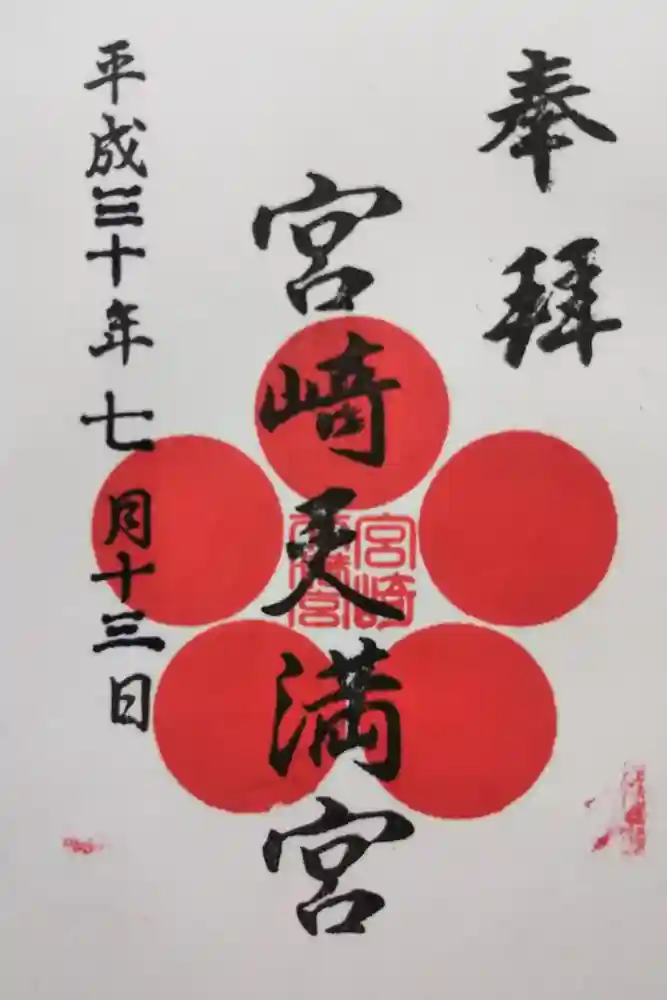 奉拝
宮崎天満宮
宮崎
天満宮
平成三十年七月十三日